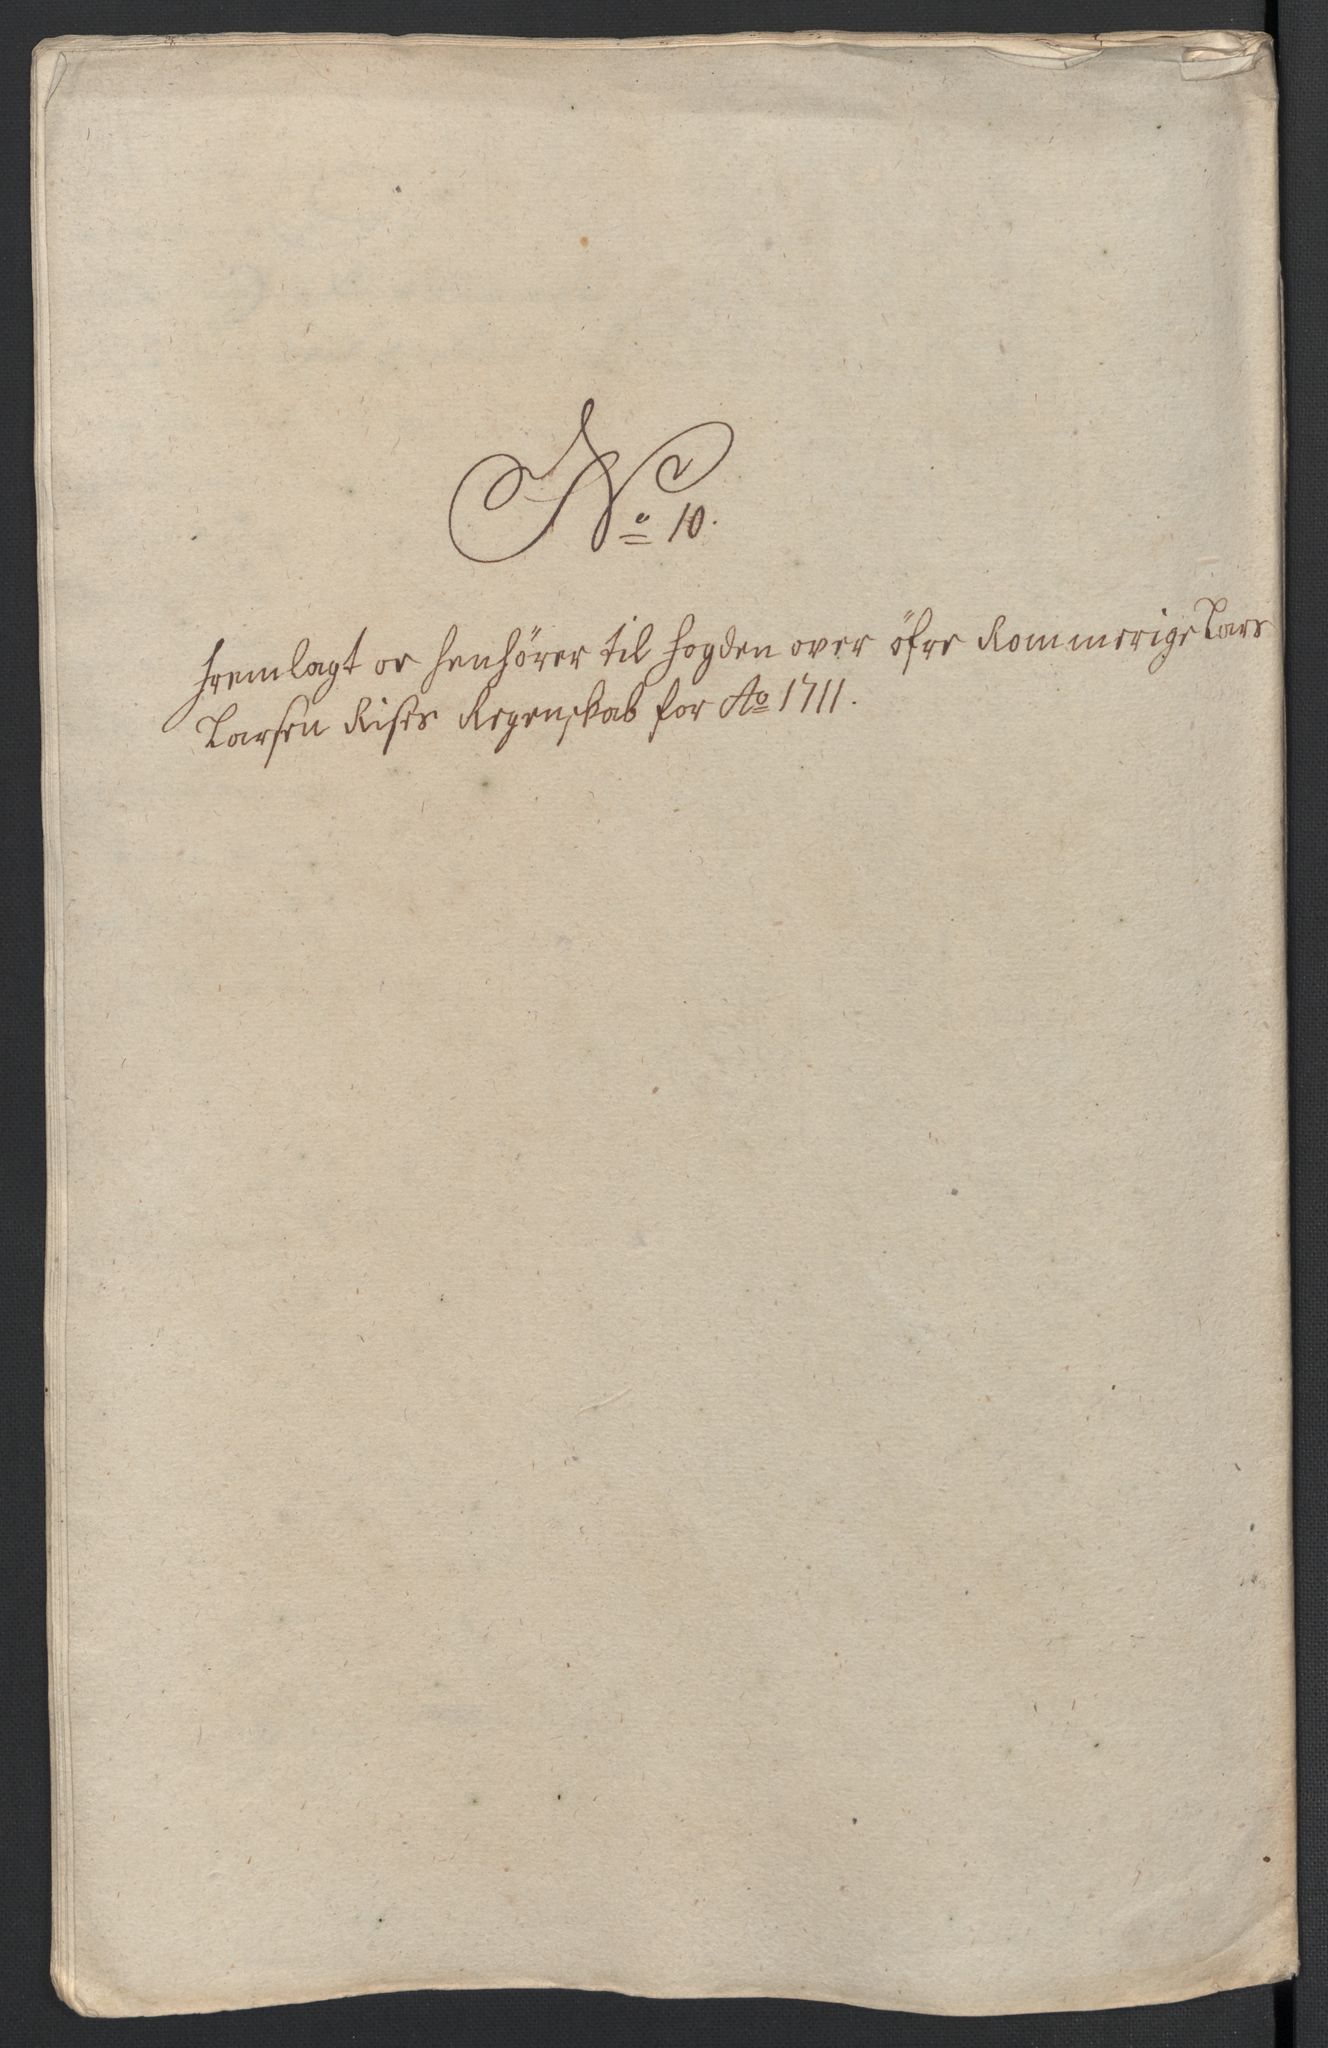 No 10.
fremlagt oc henhörer til fogden over öfre Rommerige Lars
Larsen Rises Regenskab for Ao 1711.